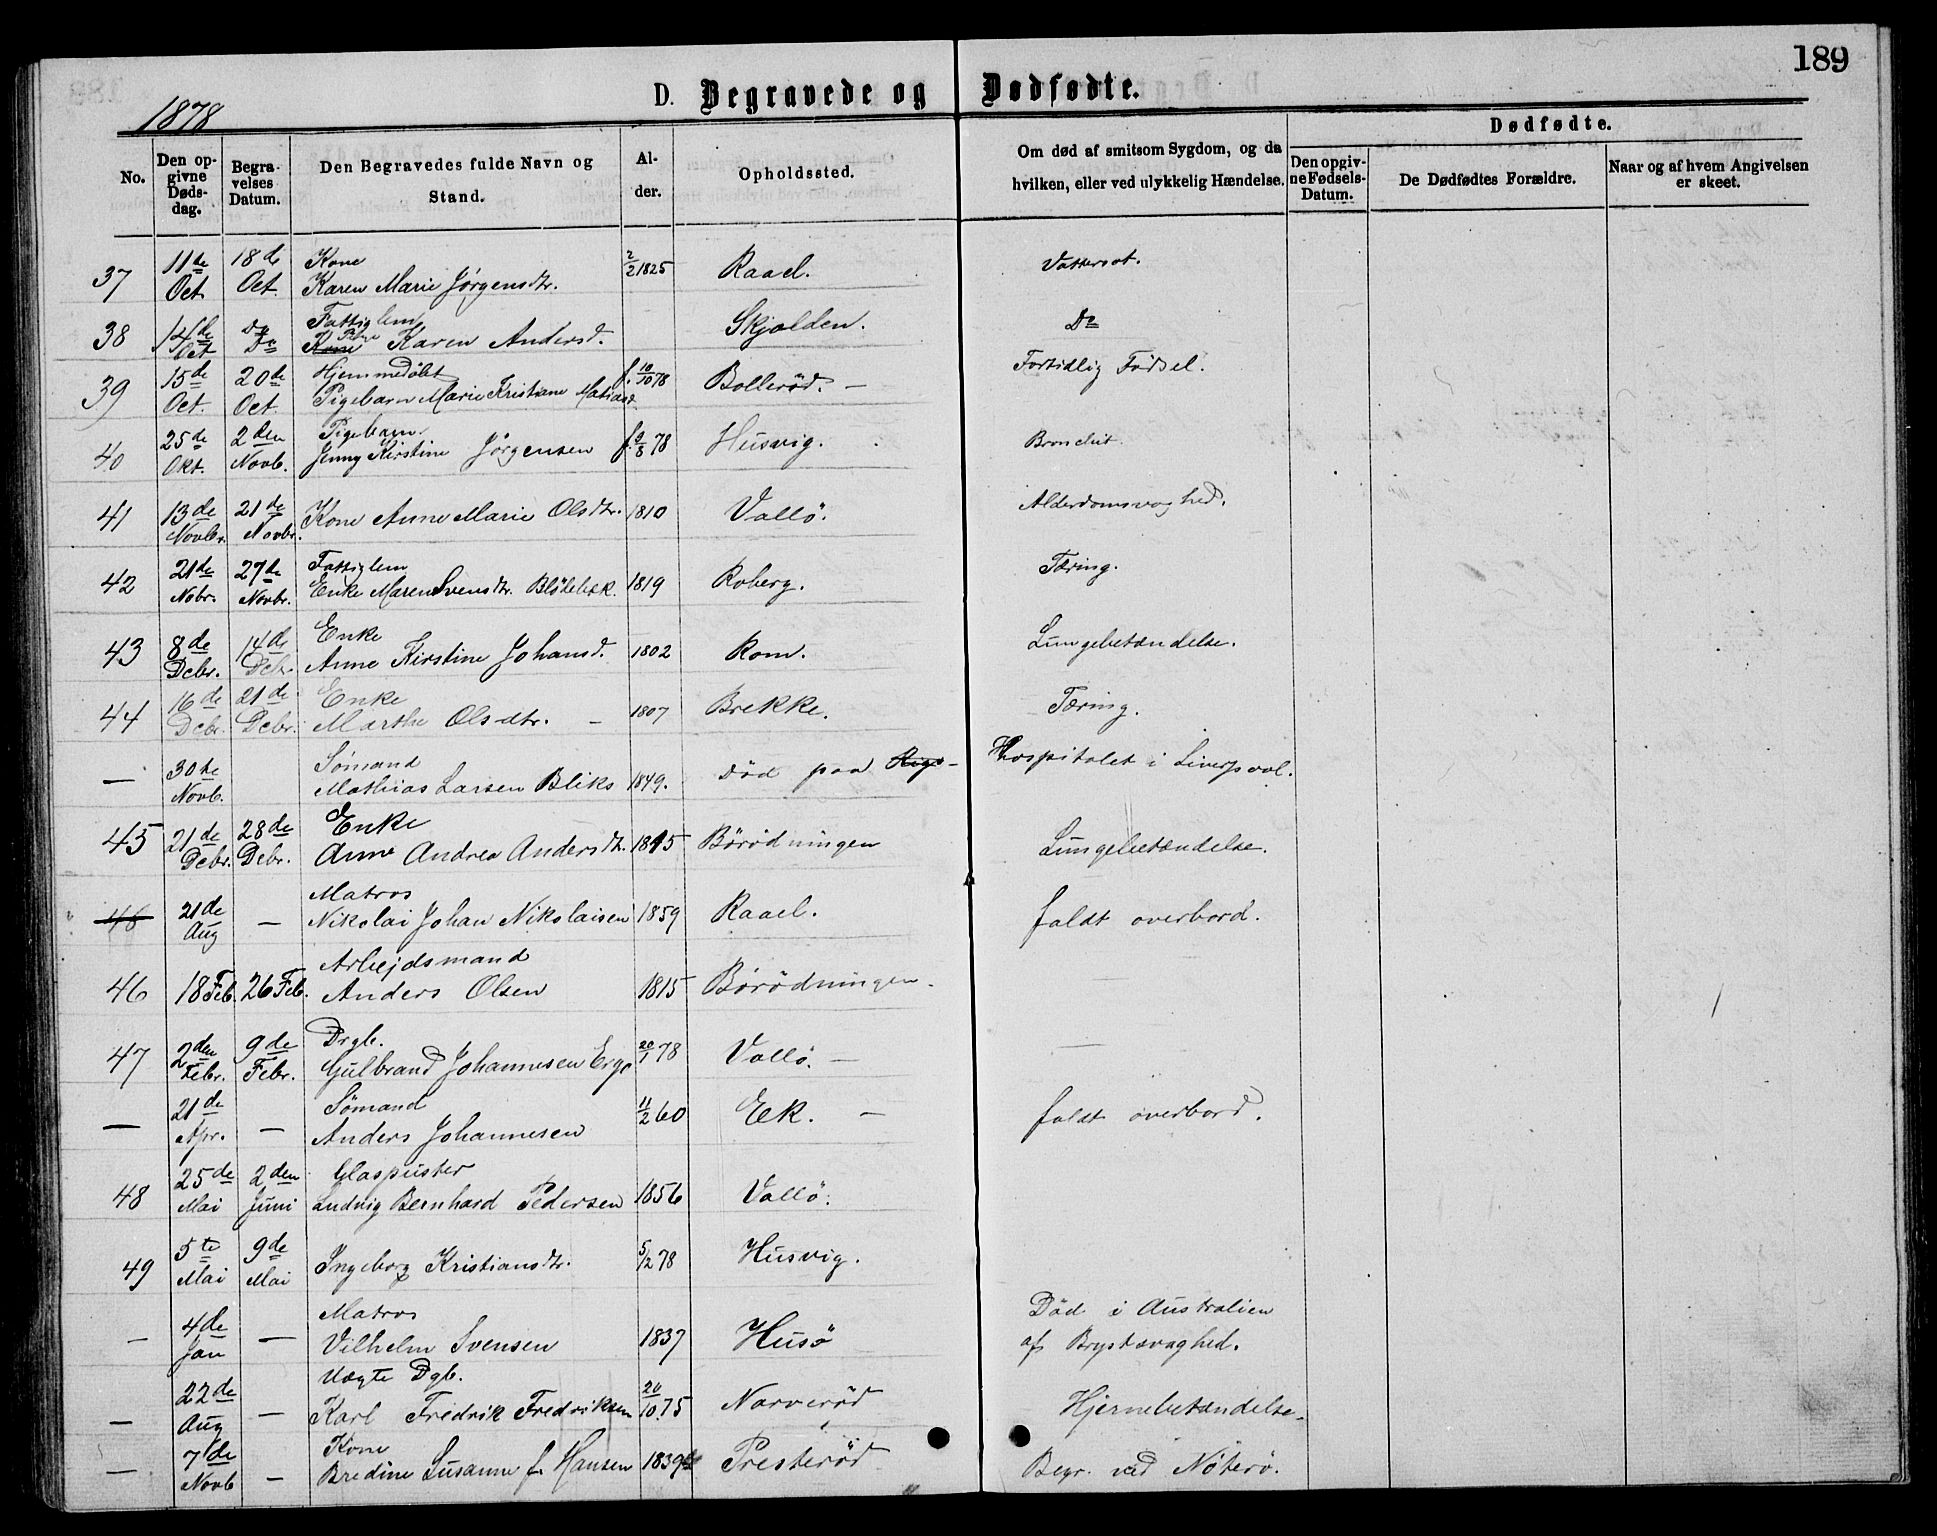 189
D. Begravede og Dødfødte.
1878
No.
Den opgivne Dødsdag.
Begravelses Datum.
Den Begravedes fulde Navn og Stand.
Alder.
Opholdssted.
Om død af smitsom Sygdom, og da hvilken, eller ved ulykkelig Hændelse.
Dødfødte.
Den opgivne Fødsels-Datum.
De Dødfødtes Forældre.
Naar og af hvem Angivelsen er skeet.
37 11de Oct. 18d Oct. Kone Karen Marie Jørgensdtr. 2/2 1825 Raael. Vattersot.
38 14de Oct Do Do Fattiglem Kone Pige Karen Andersd. Skjolden. Do
39 15de Oct. 20de Oct. Hjemmedøbt Pigebarn Marie Kristiane f. 10/10 78 Bollerød. — Fortidlig Fødsel.
40 25de Okt. 2den Novb. Pigebarn Jenny Kirstine Jørgensen Husvig. Bronchit.
41 13de Novbr. 21de Novbr. Kone Anne Marie Olsdtr. 1810 Vallö. Alderdomsvaghed.
42 21de Nobr. 27de Novbr. Fattiglem Enke Maren Svensdtr. 1819 Roberg. Tæring.
43 8de Dcbr. 14de Dcbr. Enke Anne Kirstine Johansd. 1802 Rom. Lungebetændelse.
44 16de Dcbr. 21de Dcbr. Enke Marthe Olsdtr. — 1807 Brekke. Tæring.
— 30te Novb. Sømand Mathias Larsen Bliks 1849. død paa Hospitalet i Liverpool.
45 21de Dcbr. 28de Debr. Enke Anne Andrea Andersdtr. 1815 Börödningen Lungebetændelse.
46 21de Aug — Matros Nikolai Johan Nikolaisen 1859 Raael. faldt overbord.
46 18 Feb. 26 Feb. Arbejdsmand Anders Olsen 1815 Börödningen.
47 2den Febr. 9de Febr. Drgb. Gulbrand Johannesen 20/1 78 Vallö. —
— 21de Apr. — Sömand Anders Johannesen 11/2 60 Eek. — faldt overbord.
48 25de Mai 2den Juni Glaspuster Ludvig Bernhard Pedersen 1856 Vallö.
49 5te Mai 9de Mai Ingeborg Kristiansdtr. 5/12 78 Husvig.
— 4de Jan — Matros Vilhelm Svensen 1837 Husö Död i Australien af Brystsvaghed.
— 22de Aug — Uægte Dgb. Karl Fredrik Fredriksen 20/10 75 Narverød Hjernebetændelse.
— 7de Novb — Kone Bredine Susanne f. Hansen 1839 Presterød Begr. ved Nöterö.